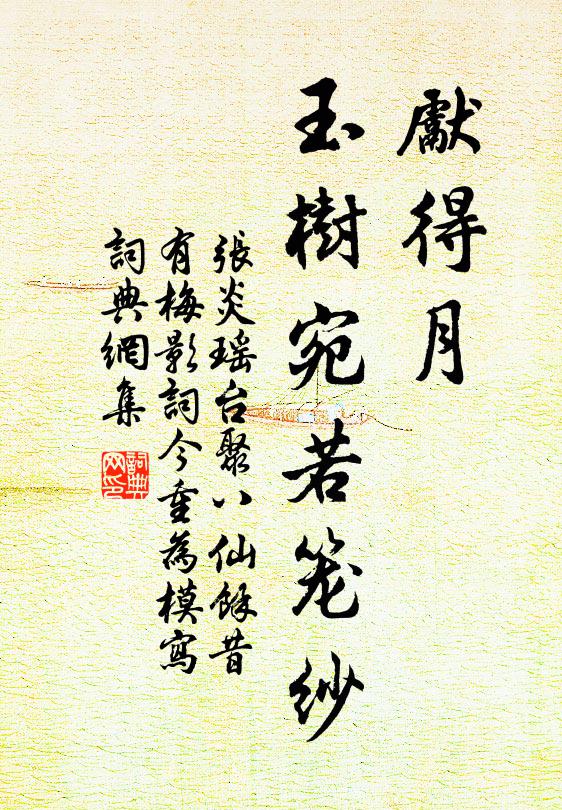 獻得月
玉樹宛若笼紗
張炎瑶台聚八仙餘昔
有梅影詞今重為模寫
詞典網集
詞典
网印